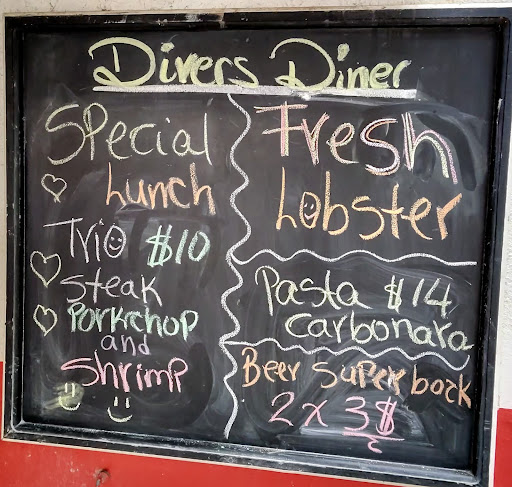 Divers Diner
Special
Lunch
Trio $10
Steak
Porkchop
and
Shrimp
Fresh
Lobster
Pasta $14
Carbonara
Beer Super bock
2 x 3$